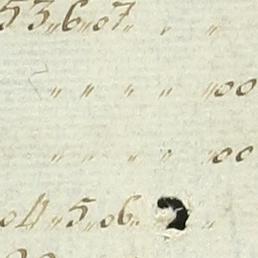 53„6„07 „ „
„ „ „ „ „00
„ „ „ „ „00
04„5„06 „